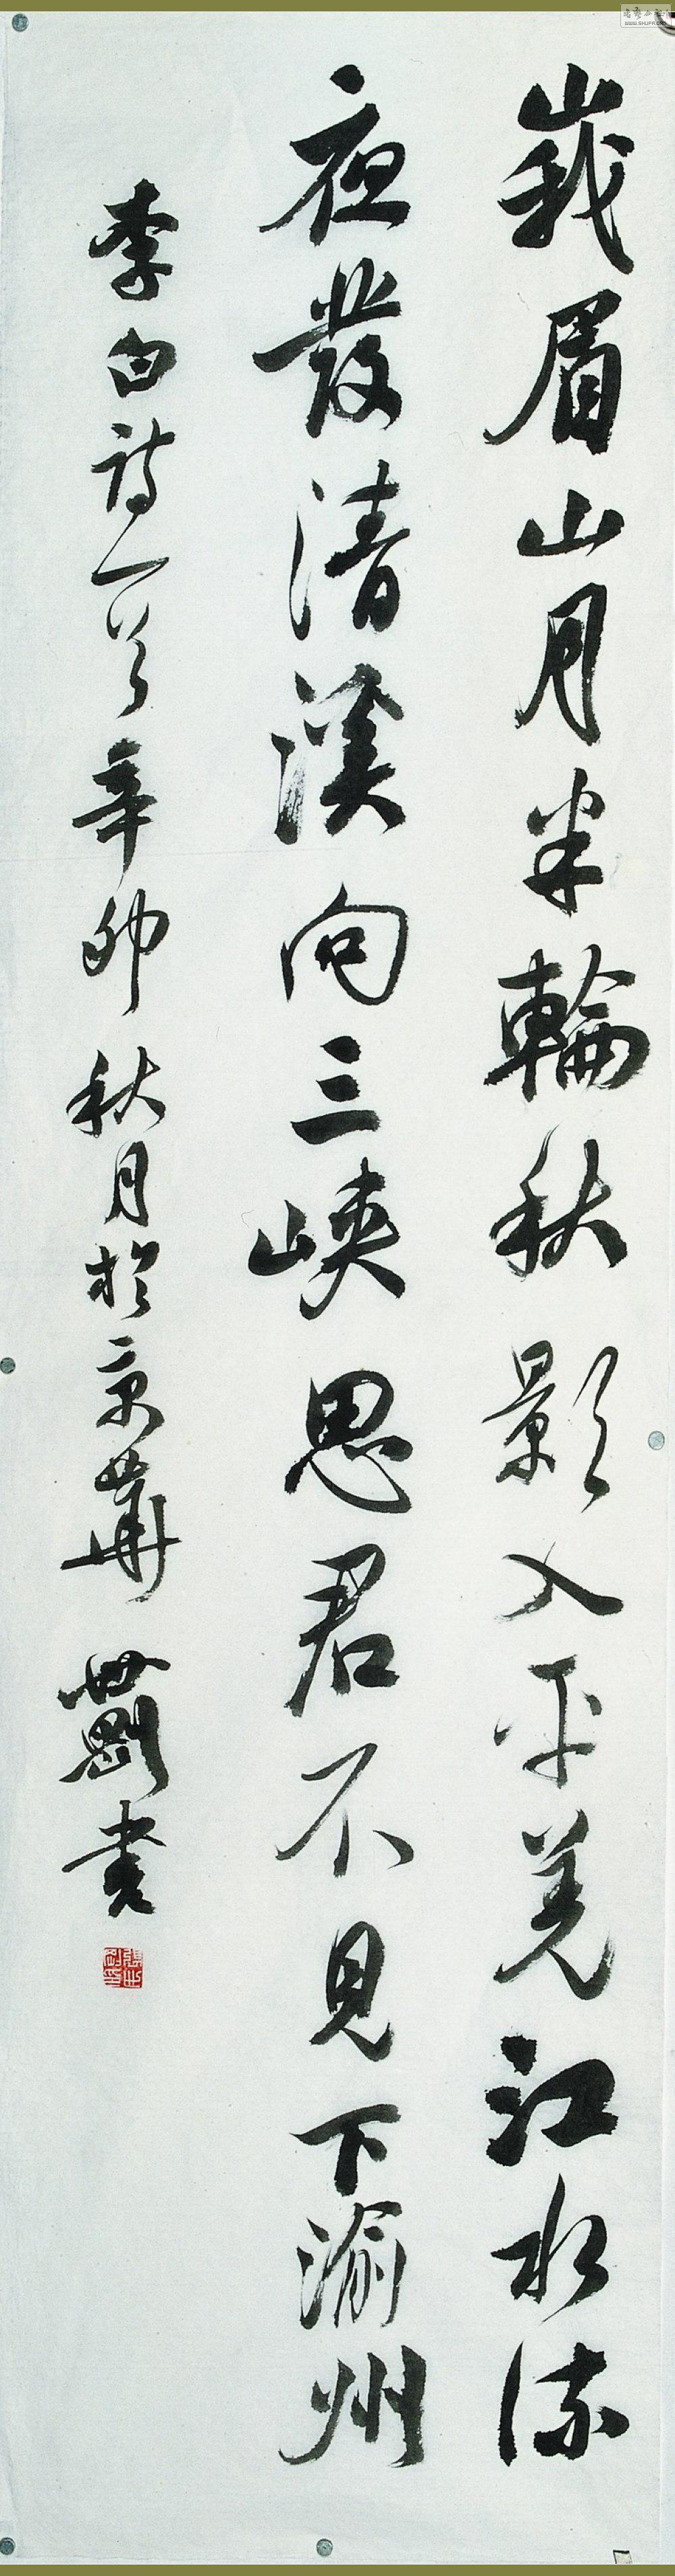 峩眉山月半輪秋影入平羌江水流
夜發清溪向三峽思君不見下渝州
李白詩一首辛卯秋月於京華世剛書